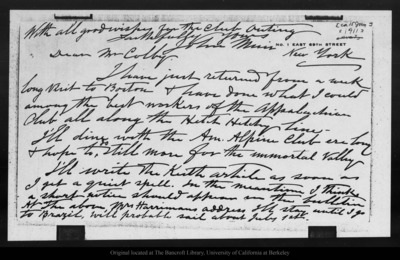 With all good wishes for the Club Outing
Faithfully Yours
John Muir
NO. 1 EAST 69TH STREET
New York
Dear Mr Colby
I have just returned from a week
long visit to Boston & have done what I could
among the best workers of the Appalachian
Club all along the Hetch Hetchy line.
I'll dine with the Am. Alpine Club ere long
& hope to do still more for the immortal Valley
I'll write the Keith article as soon as
I get a quiet spell. In the meantime I think
a short notice should appear in the bulletin
At the above, Mrs Harrimans address I'll stop until I go
to Brazil. Will probable sail about July 1st.
Original located at The Bancroft Library, University of California at Berkeley